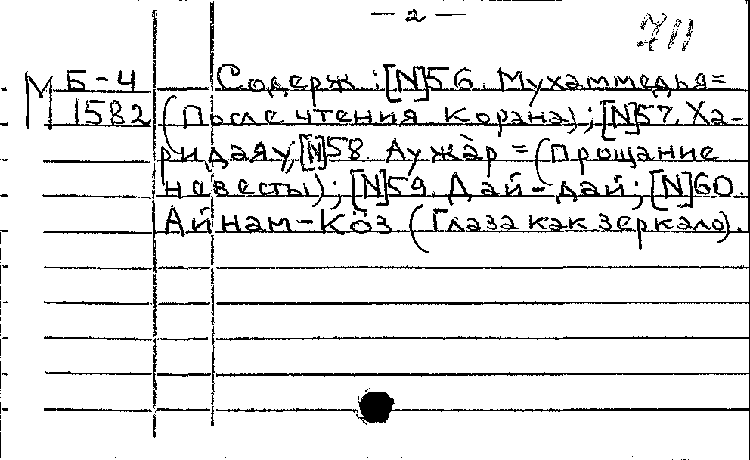 — 2 —
711
М Б-4
1582
Содерж: [N]56. Мухаммедья=
(После чтения Корана); [N]57. Ха-
ридаяу; [N]58. Аужа̀р = (Прощание
невесты); [N]59. Дай-дай; [N]60.
Айнам-Кӧз (Глаза как зеркало).